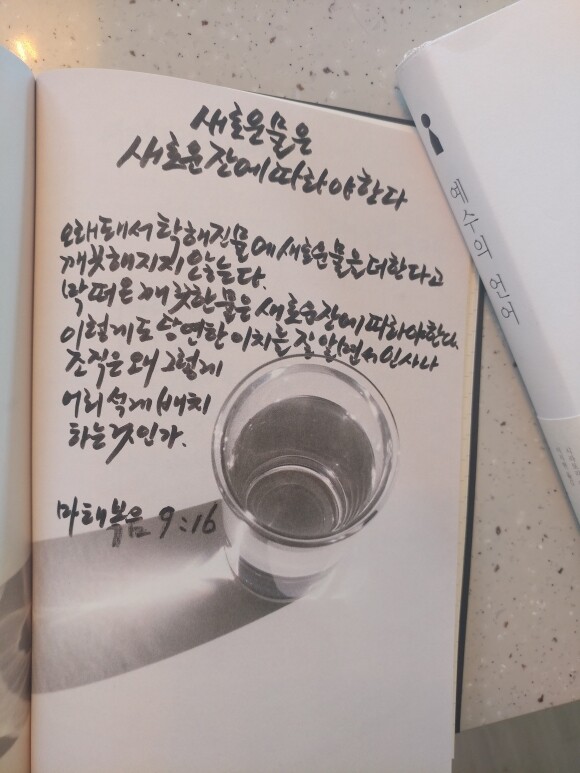 새로운물은
새로운잔에따라야한다
오래돼서탁해진물에새로운물을더한다고
깨끗해지지않는다.
막떠온깨끗한물은새로운잔에따라야한다.
이렇게도당연한이치를잘알면서인사나
조직은왜그렇게
어리석게배치
하는것인가.
마태복음 9:16
예수의 언어